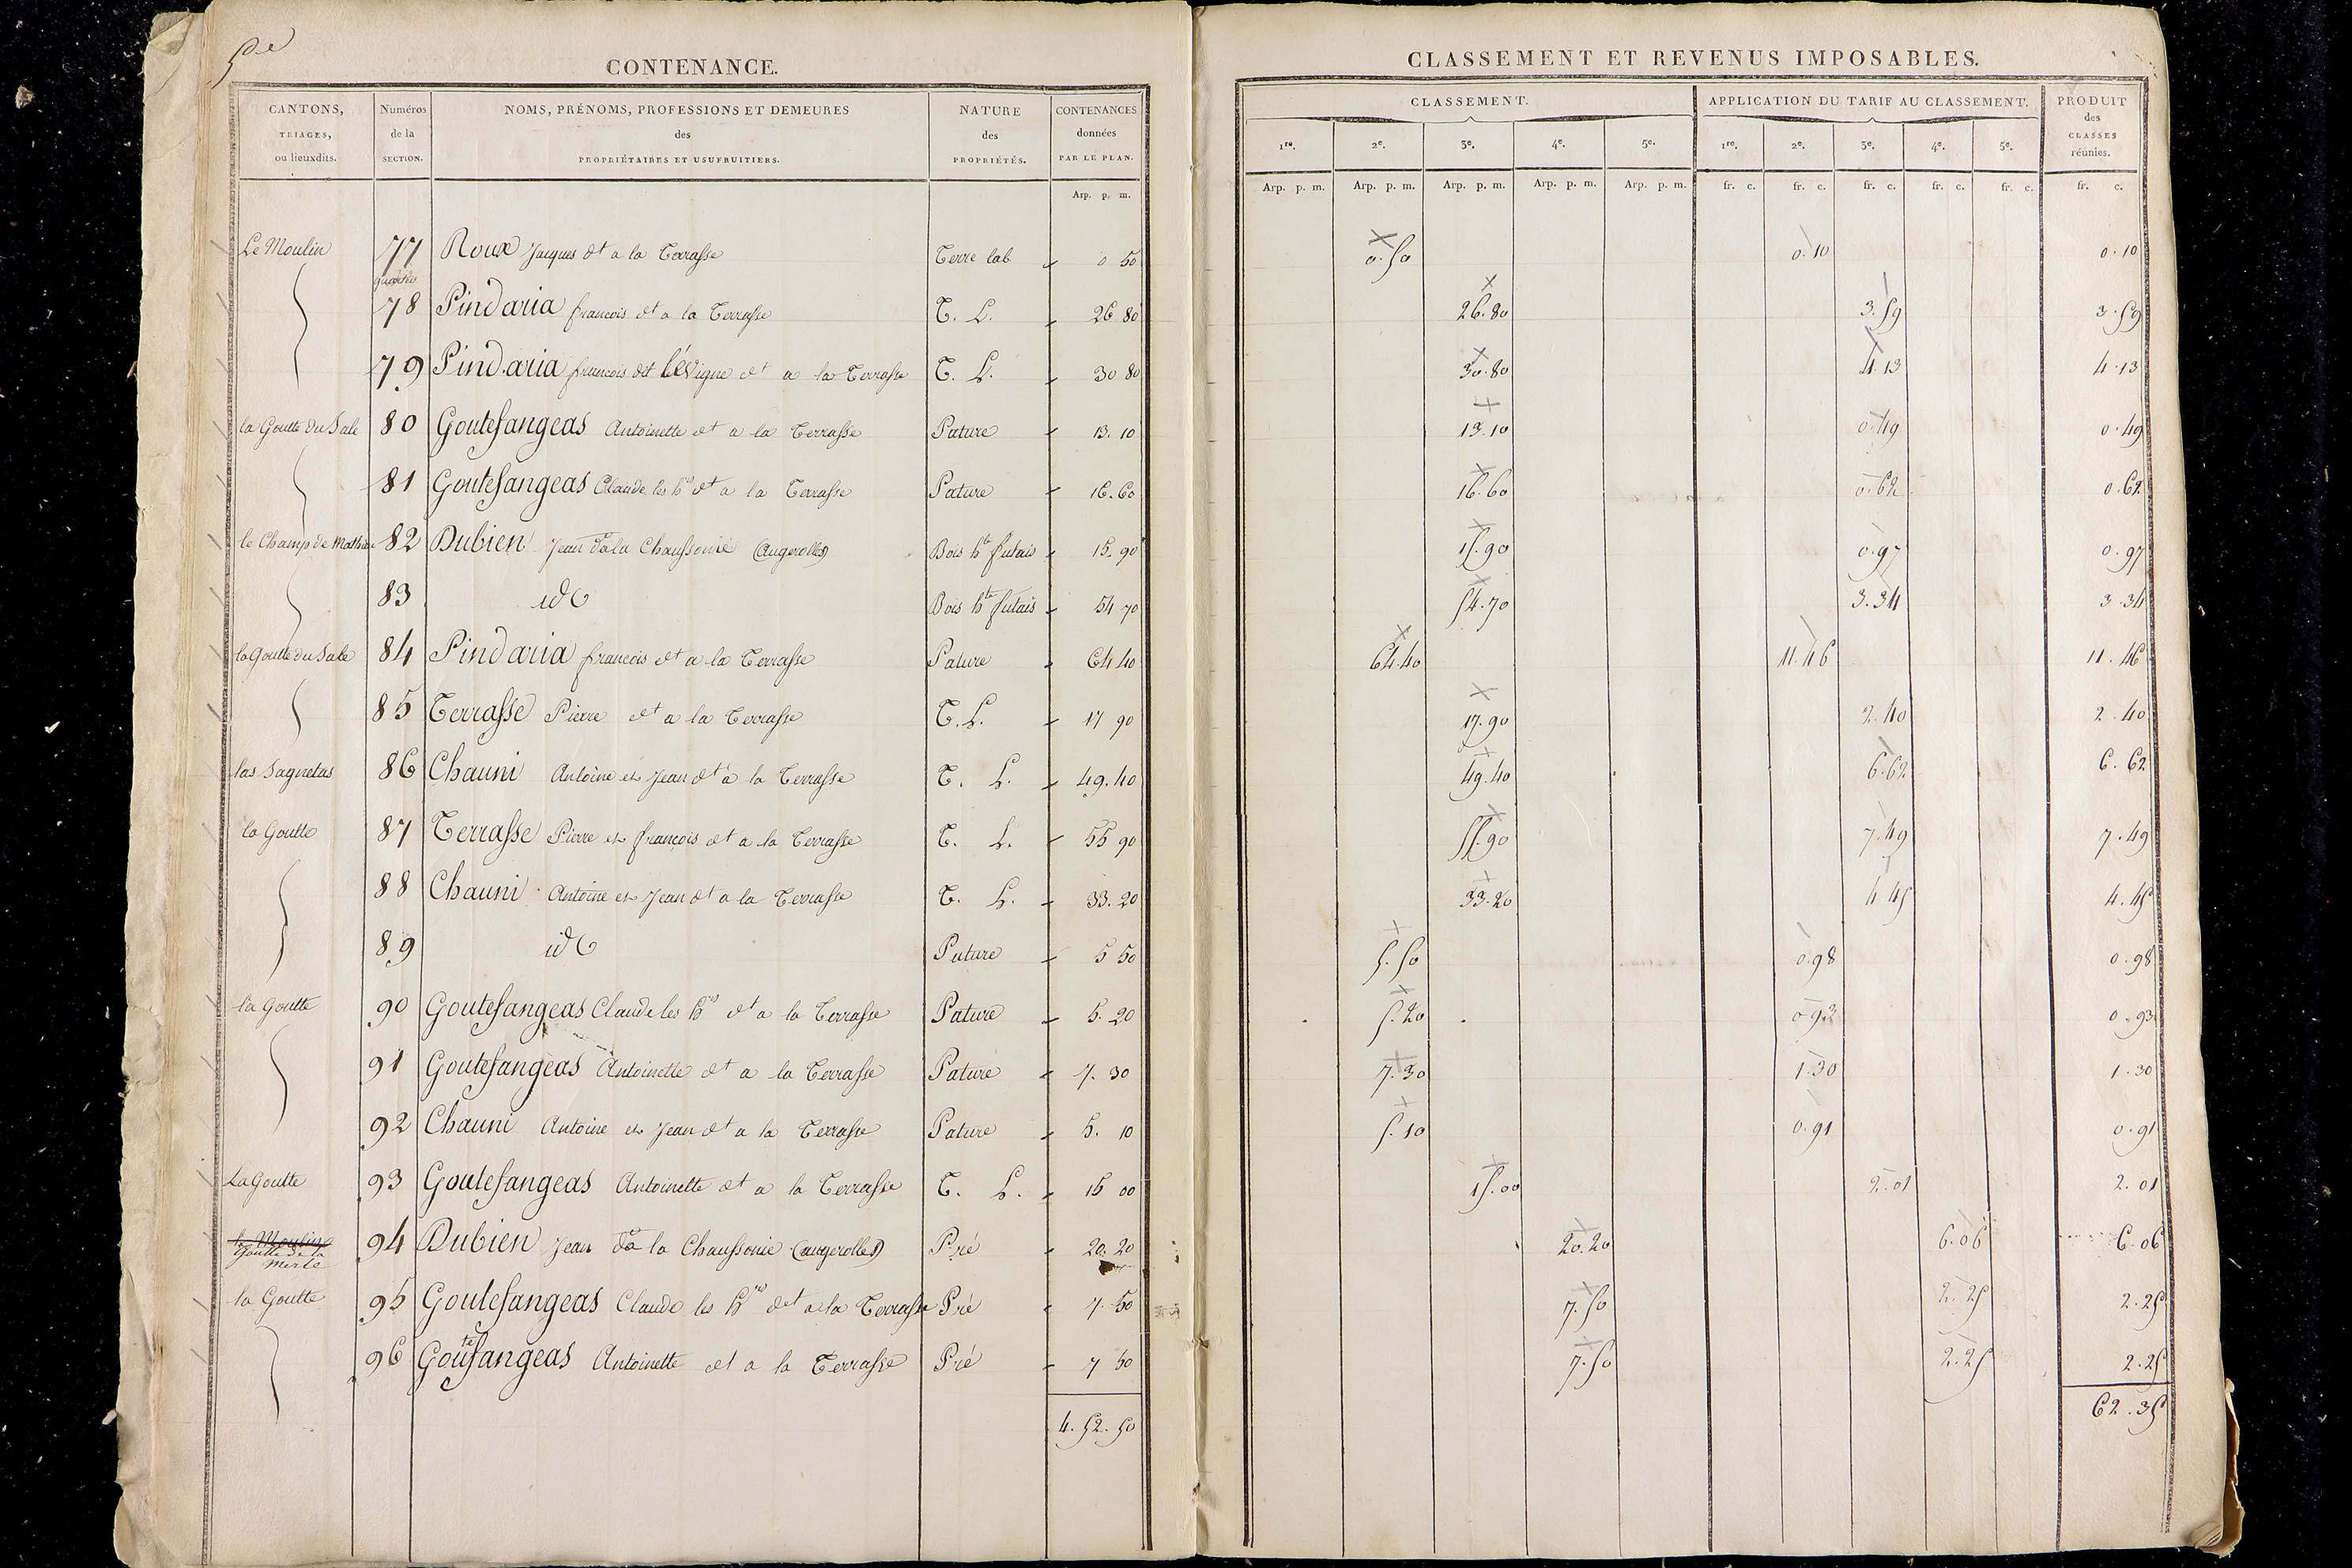 5e
CONTENANCE.
CLASSEMENT ET REVENUS IMPOSABLES.
CANTONS, TRIAGES, ou lieuxdits. | Numéros de la SECTION. | NOMS, PRÉNOMS, PROFESSIONS ET DEMEURES des PROPRIÉTAIRES ET USUFRUITIERS. | NATURE des PROPRIÉTÉS. | CONTENANCES données PAR LE PLAN. | CLASSEMENT. | APPLICATION DU TARIF AU CLASSEMENT. | PRODUIT des CLASSES réunies.
1re. 2e. 3e. 4e. 5e. 1re. 2e. 3e. 4e. 5e.
Arp. p. m. Arp. p. m. Arp. p. m. Arp. p. m. Arp. p. m. Arp. p. m. fr. c. fr. c. fr. c. fr. c. fr. c. fr. c.
Le Moulin 77 Roux Jacques dt a la Terrasse Terre lab 0 50 0.50 0.10 0.10
78 Pindaria francois dt a la Terrasse T. L. 26 80 26.80 3.59 3.59
79 Pindaria francois dit léVigne dt a la Terrasse T. L. 30 80 30.80 4.13 4.13
la Goutte du Sale 80 Goutefangeas Antoinette dt a la Terrasse Pature 13.10 13.10 0.49 0.49
81 Goutefangeas Claude les hrs dt a la Terrasse Pature 16.60 16.60 0.62 0.62
le Champ de Mathieu 82 Dubien Jean dt a la Chaussonie (Augerolles) Bois hte futais 15.90 15.90 0.97 0.97
83 id Bois hte futais 54 70 54.70 3.34 3.34
la Goutte du Sale 84 Pindaria francois dt a la Terrasse Pature 64 40 64.40 11.46 11.46
85 Terrasse Pierre dt a la Terrasse T.L. 17 90 17.90 2.40 2.40
las Sagnetas 86 Chauni Antoine et Jean dt a la Terrasse T. L. 49.40 49.40 6.62 6.62
la Goutte 87 Terrasse Pierre et françois dt a la Terrasse T. L. 55 90 55.90 7.49 7.49
88 Chauni Antoine et Jean dt a la Terrasse T. L. 33.20 33.20 4.45 4.45
89 id Pature 5 50 5.50 0.98 0.98
la Goutte 90 Goutefangeas Claude les hrs dt a la Terrasse Pature 5.20 5.20 0.93 0.93
91 Goutefangeas Antoinette dt a la Terrasse Pature 7.30 7.30 1.30 1.30
92 Chauni Antoine et Jean dt a la Terrasse Pature 5.10 5.10 0.91 0.91
La Goutte 93 Goutefangeas Antoinette dt a la Terrasse T. L. 15 00 15.00 2.01 2.01
le Moulin
Goutte de la merle 94 Dubien Jean dt a la Chaussonie (augerolles) Pré 20.20 20.20 6.06 6.06
la Goutte 95 Goutefangeas Claude les hrs dt a la Terrasse Pré 7.50 7.50 2.25 2.25
96 Goutefangeas Antoinette dt a la Terrasse Pré 7 50 7.50 2.25 2.25
4.52.50 62.35